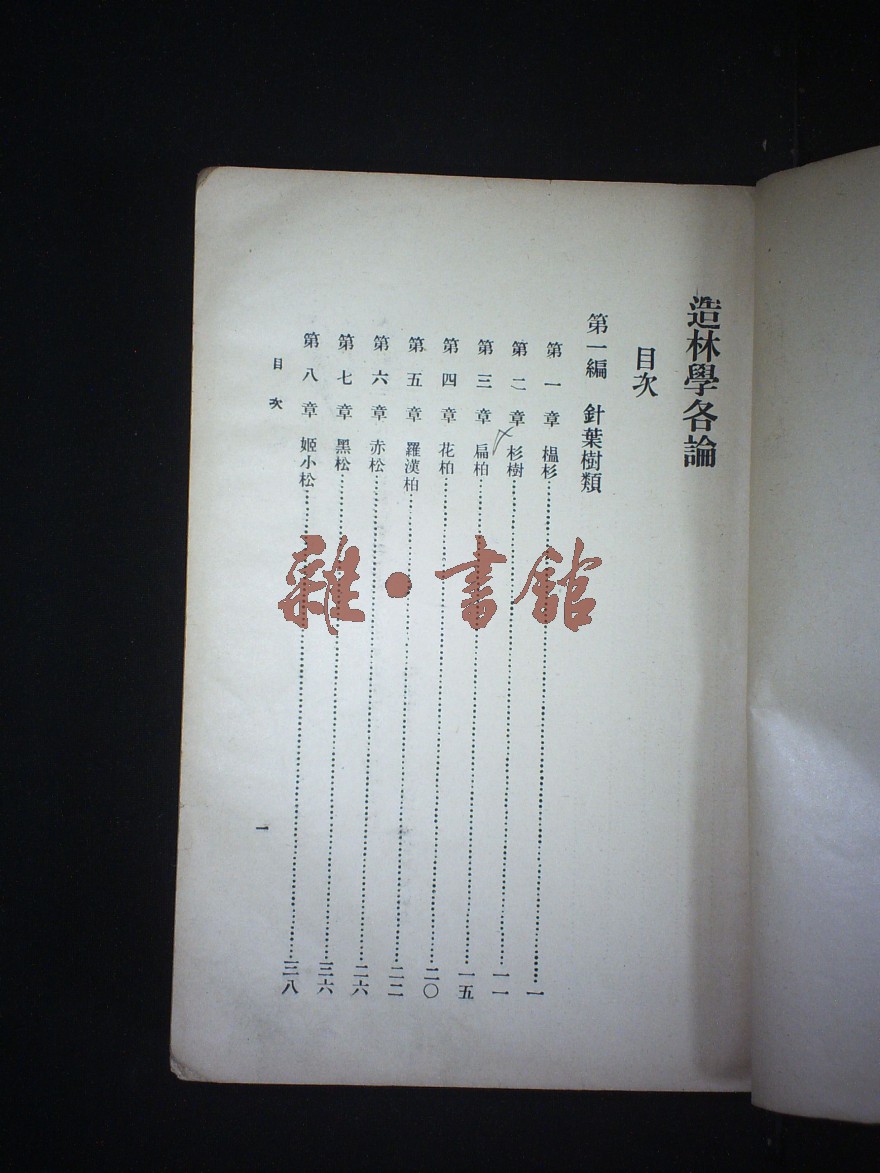 造林學各論
目次
第一編 針葉樹類
第一章 榲杉……一
第二章 杉樹……一一
第三章 扁柏……一五
第四章 花柏……二〇
第五章 羅漢柏……二二
第六章 赤松……二六
第七章 黑松……三六
第八章 姬小松……三八
目次
一
雜·書館